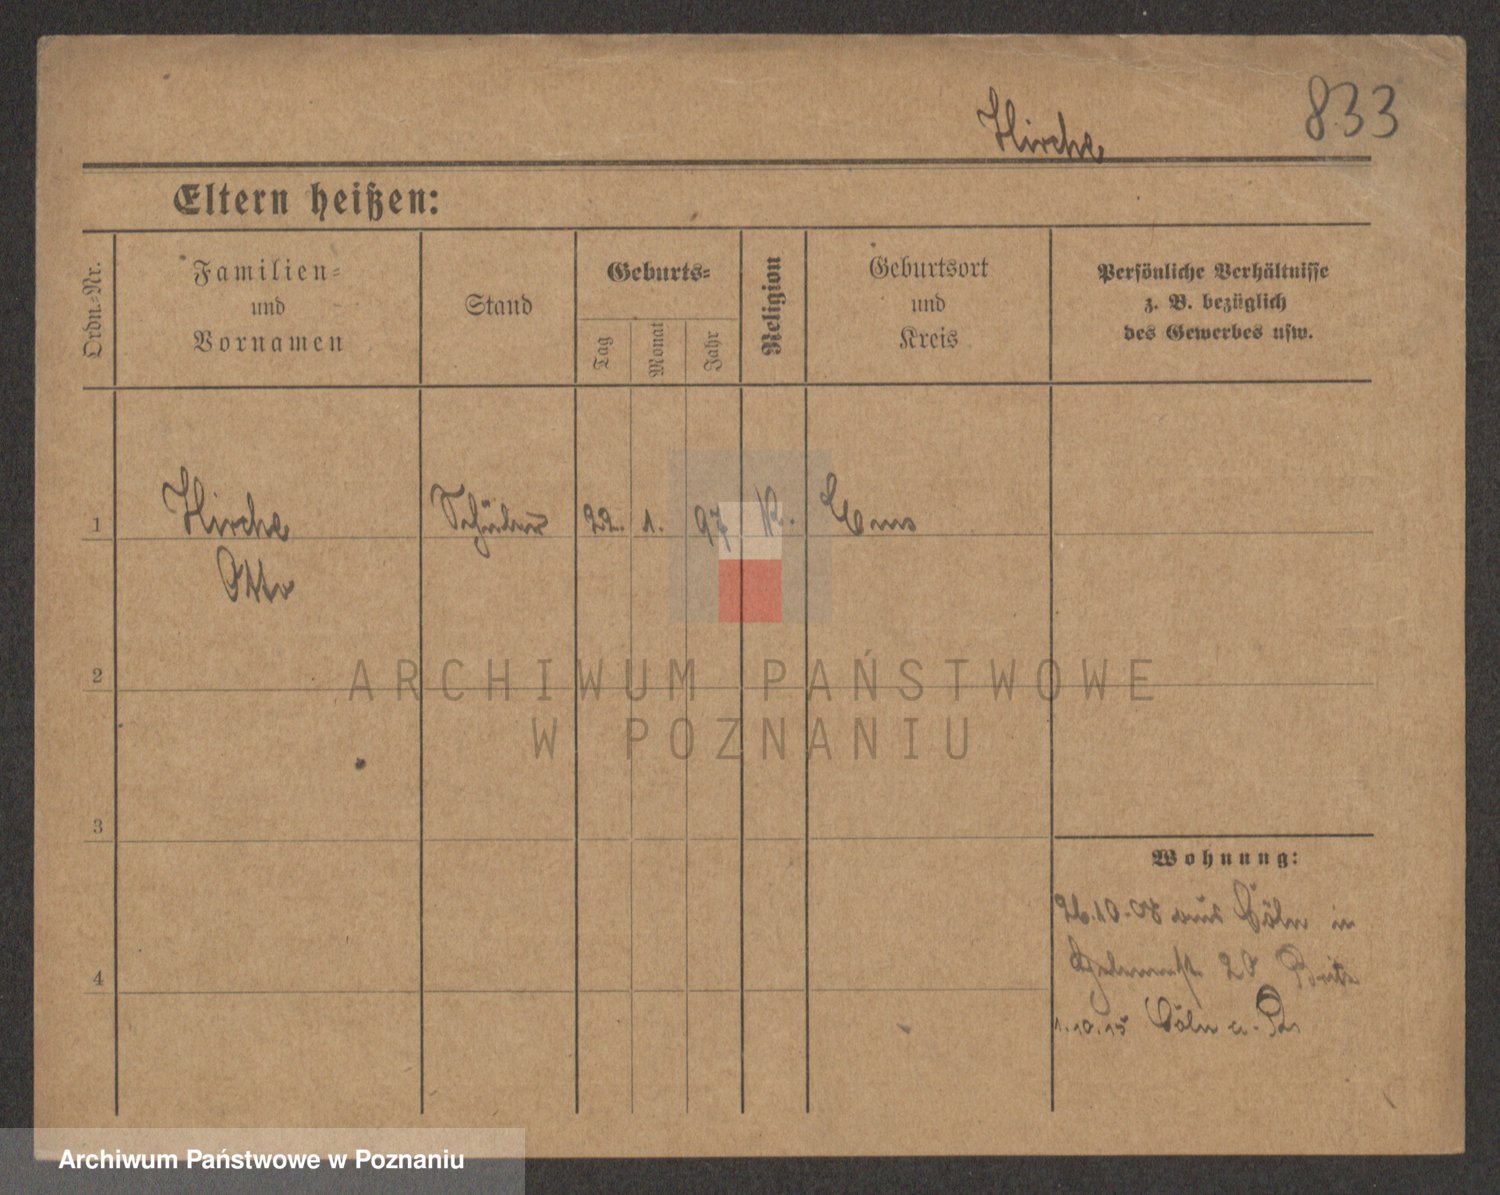 833
Hirche
Eltern heißen:
Ordn.=Nr.
Familien=
und
Vornamen
Stand
Geburts=
Tag
Monat
Jahr
Religion
Geburtsort
und
Kreis
Persönliche Verhältnisse
z. B. bezüglich
des Gewerbes usw.
1 Hirche Schüler 22. 1. 97 K. Ems
Otto
2
3
4
Wohnung:
26.10.08 aus Cöln in
20
1.10.15 Cöln a. Rh
ARCHIWUM PAŃSTWOWE
W POZNANIU
Archiwum Państwowe w Poznaniu